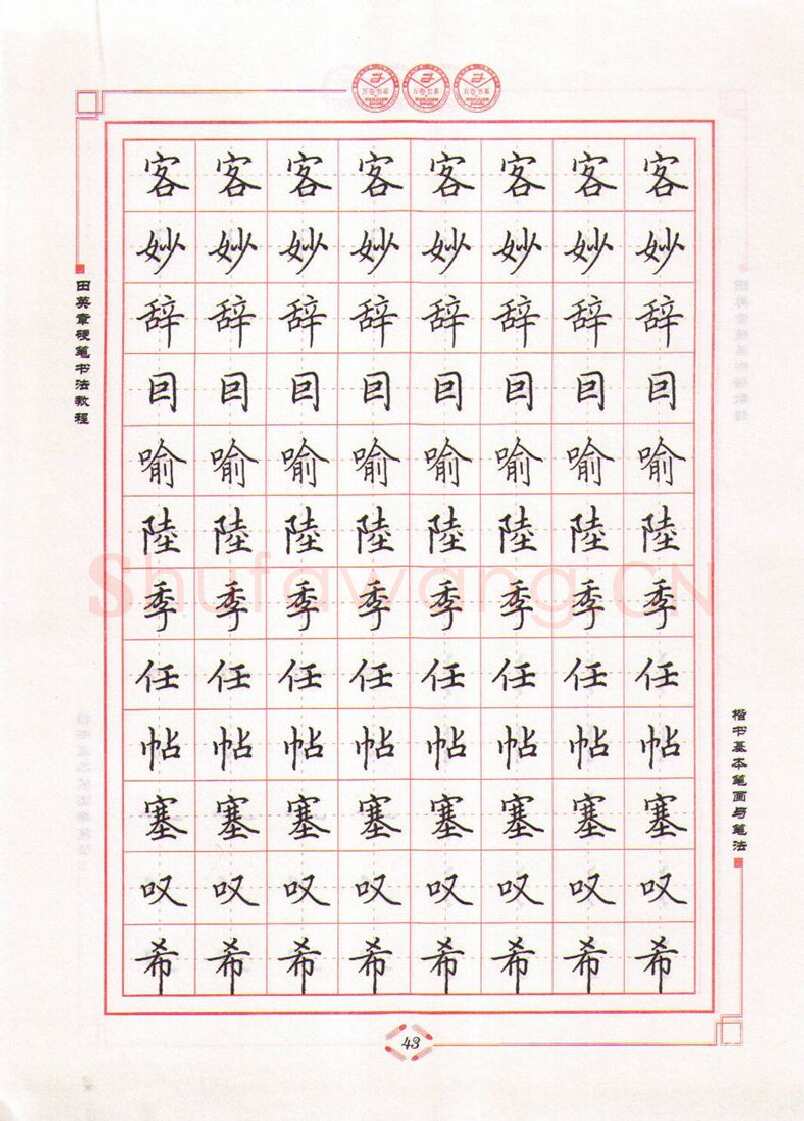 客 客 客 客 客 客 客 客
妙 妙 妙 妙 妙 妙 妙 妙
辞 辞 辞 辞 辞 辞 辞 辞
回 回 回 回 回 回 回 回
喻 喻 喻 喻 喻 喻 喻 喻
陸 陸 陸 陸 陸 陸 陸 陸
季 季 季 季 季 季 季 季
任 任 任 任 任 任 任 任
帖 帖 帖 帖 帖 帖 帖 帖
塞 塞 塞 塞 塞 塞 塞 塞
叹 叹 叹 叹 叹 叹 叹 叹
希 希 希 希 希 希 希 希
田英章硬笔书法教程
楷书基本笔画与笔法
Shufawang.CN
43